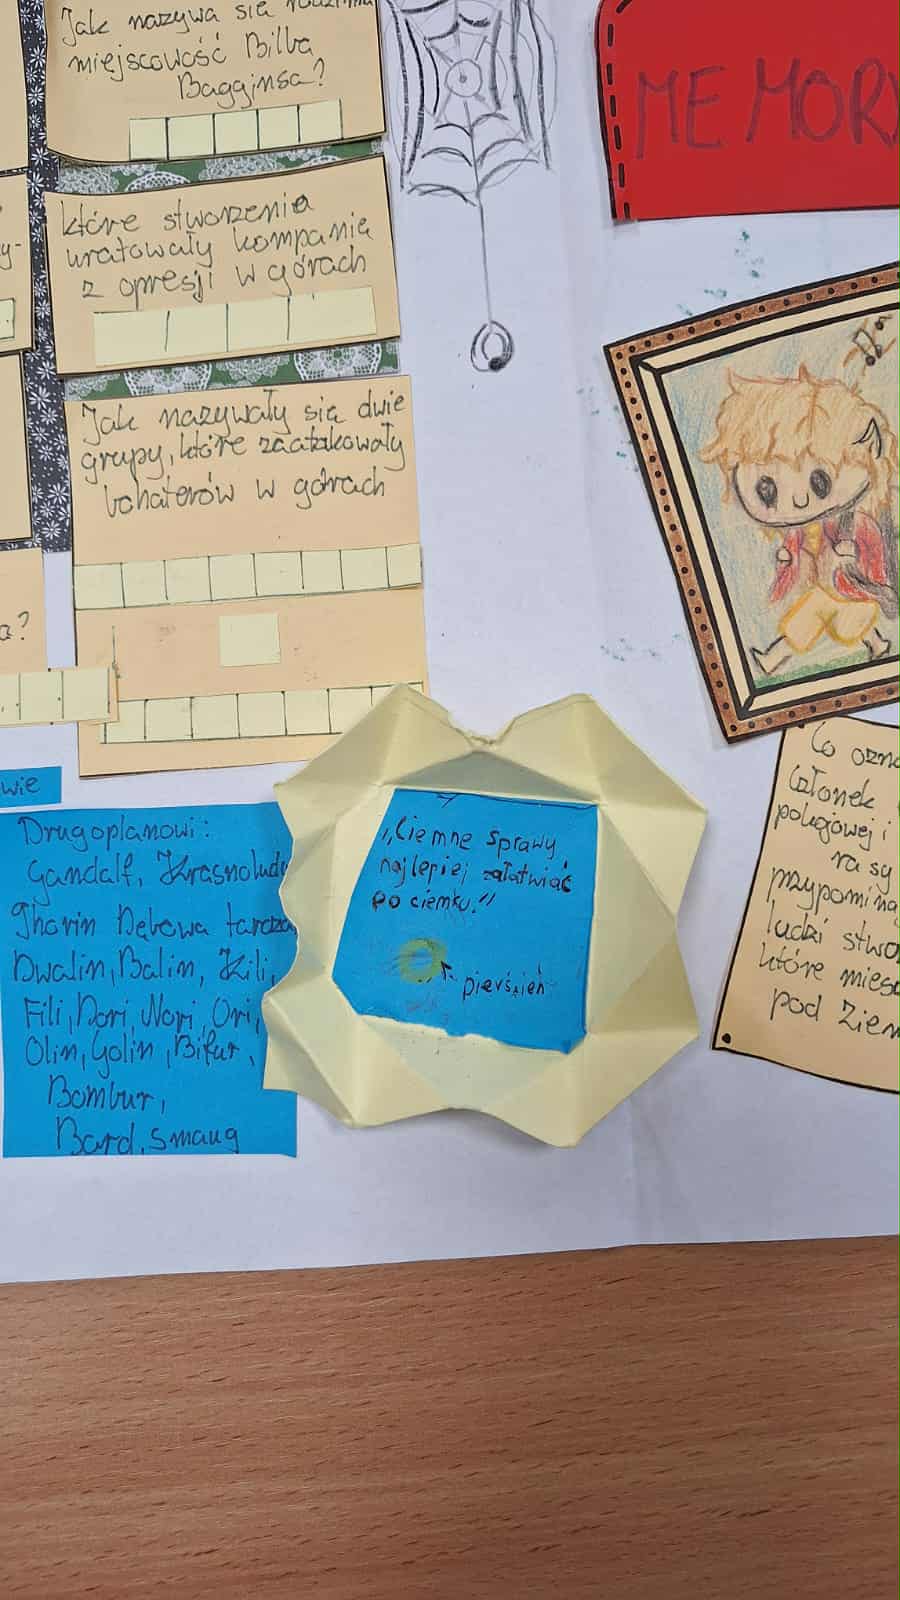 Jak nazywa się rodzinna
miejscowość Bilba
Bagginsa?
które stworzenia
uratowały kompanię
z opresji w górach
Jak nazywały się dwie
grupy, które zaatakowały
bohaterów w górach
a?
wie
Drugoplanowi:
Gandalf, Krasnoludy
Thorin Dębowa tarcza
Dwalin, Balin, Kili,
Fili, Dori, Nori, Ori,
Olin, Golin, Bifur,
Bombur,
Bard, smaug
"Ciemne sprawy
najlepiej załatwiać
po ciemku."
pierścień
MEMORY
Co ozna
członek
pokojowej i
ra sy
przypomina
ludzi stwo
które miesz
pod ziem